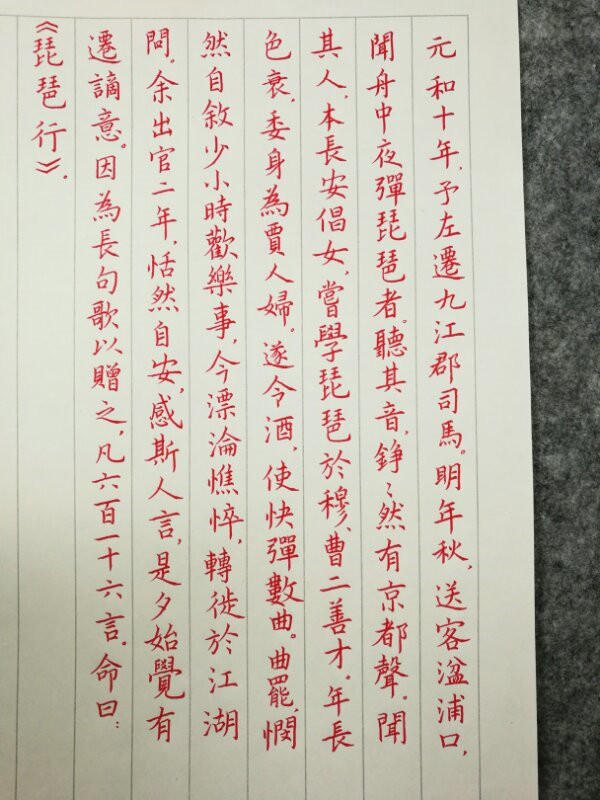 元和十年，予左遷九江郡司馬。明年秋，送客湓浦口，
聞舟中夜彈琵琶者。聽其音，錚〻然有京都聲。聞
其人，本長安倡女，嘗學琵琶於穆、曹二善才。年長
色衰，委身為賈人婦。遂令酒，使快彈數曲。曲罷，憫
然自敘少小時歡樂事，今漂淪憔悴，轉徙於江湖
間。余出官二年，恬然自安，感斯人言，是夕始覺有
遷謫意。因為長句歌以贈之，凡六百一十六言。命曰：
《琵琶行》.